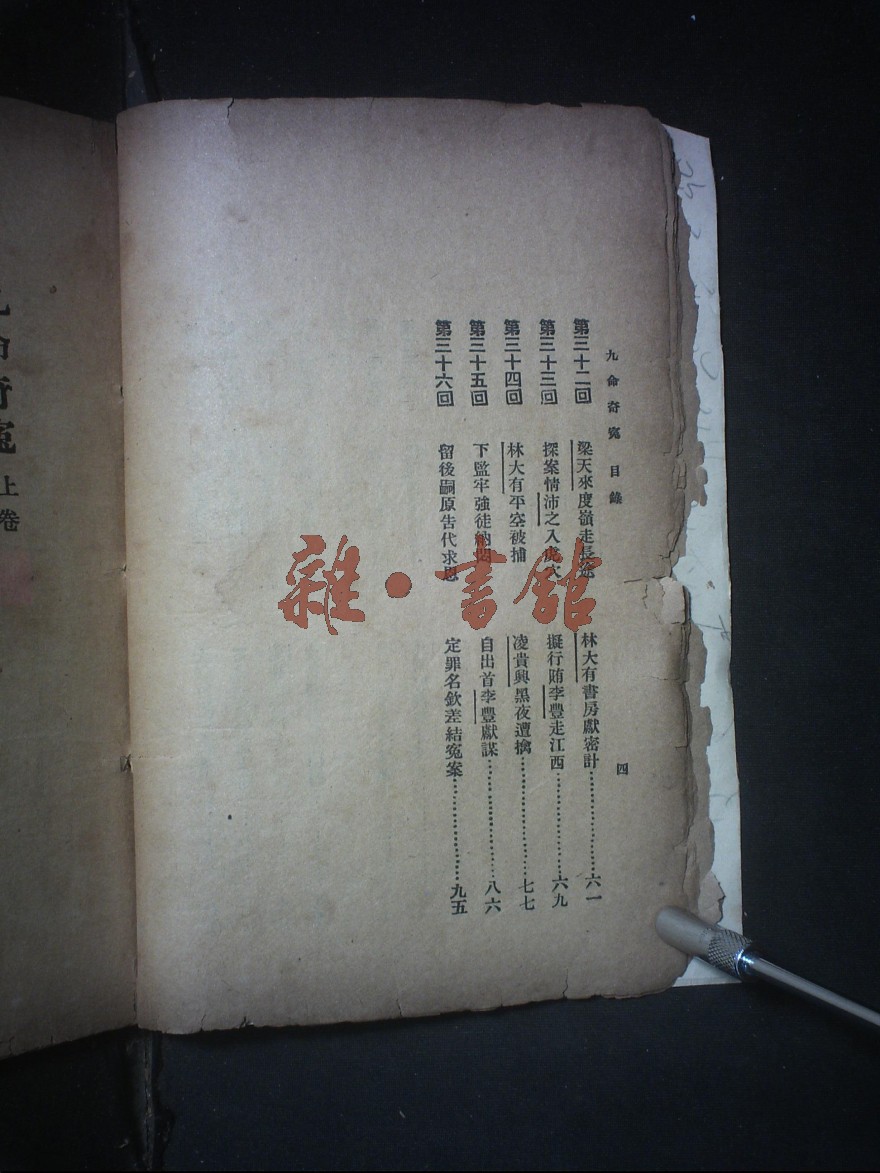 九命奇冤 目錄 四
第三十二回 梁天來度嶺走長途 林大有書房獻密計……………………六一
第三十三回 探案情沛之入虎穴 擬行賄李豐走江西……………………六九
第三十四回 林大有平空被捕 凌貴興黑夜遭擒……………………七七
第三十五回 下監牢強徒納悶 自出首李豐獻謀……………………八六
第三十六回 留後嗣原告代求恩 定罪名欽差結冤案……………………九五
命奇冤 上卷
雜·書館